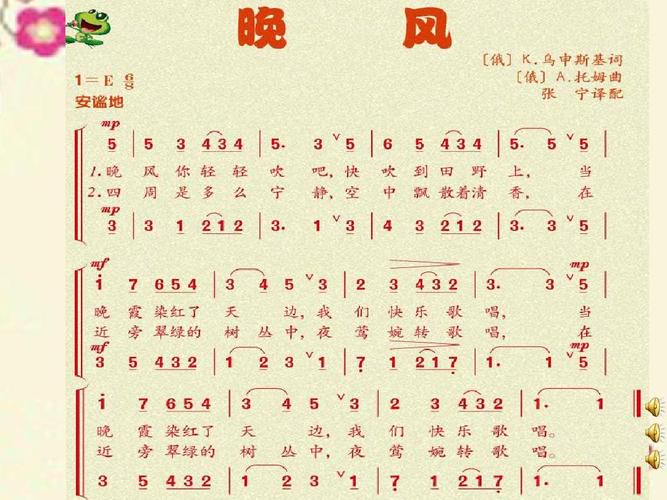 晚 风
〔俄〕K.乌申斯基词
1=E 6/8
〔俄〕A.托姆曲
安谧地
张 宁译配
mp
5 | 5 3 4 3 4 | 5· 3 5 ∨ | 6 5 4 3 4 | 5· 5 ∨ 5
1.晚 风 你 轻 轻 吹 吧,快 吹 到 田 野 上, 当
2.四 周 是 多 么 宁 静,空 中 飘 散着 清 香, 在
mp
3 | 3 1 2 1 2 | 3· 1 3 ∨ | 4 3 2 1 2 | 3· 3 ∨ 3
mf mp
i 7 6 5 4 | 3 4 5 3 ∨ | 2 3 4 3 2 | 3· 3 ∨ 5
晚 霞 染红了 天 边,我 们 快 乐 歌 唱, 当
近 旁 翠绿的 树 丛 中,夜 莺 婉 转 歌 唱, 在
mf mp
3 5 4 3 2 | 1 2 3 1 ∨ | 7 1 2 1 7 | 1· 1 ∨ 5
i 7 6 5 4 | 3 4 5 3 ∨ | 2 3 4 3 2 | 1· 1
晚 霞 染红了 天 边,我 们 快 乐 歌 唱。
近 旁 翠绿的 树 丛 中,夜 莺 婉 转 歌 唱。
3 5 4 3 2 | 1 2 3 1 ∨ | 7 1 2 1 7 | 1· 1